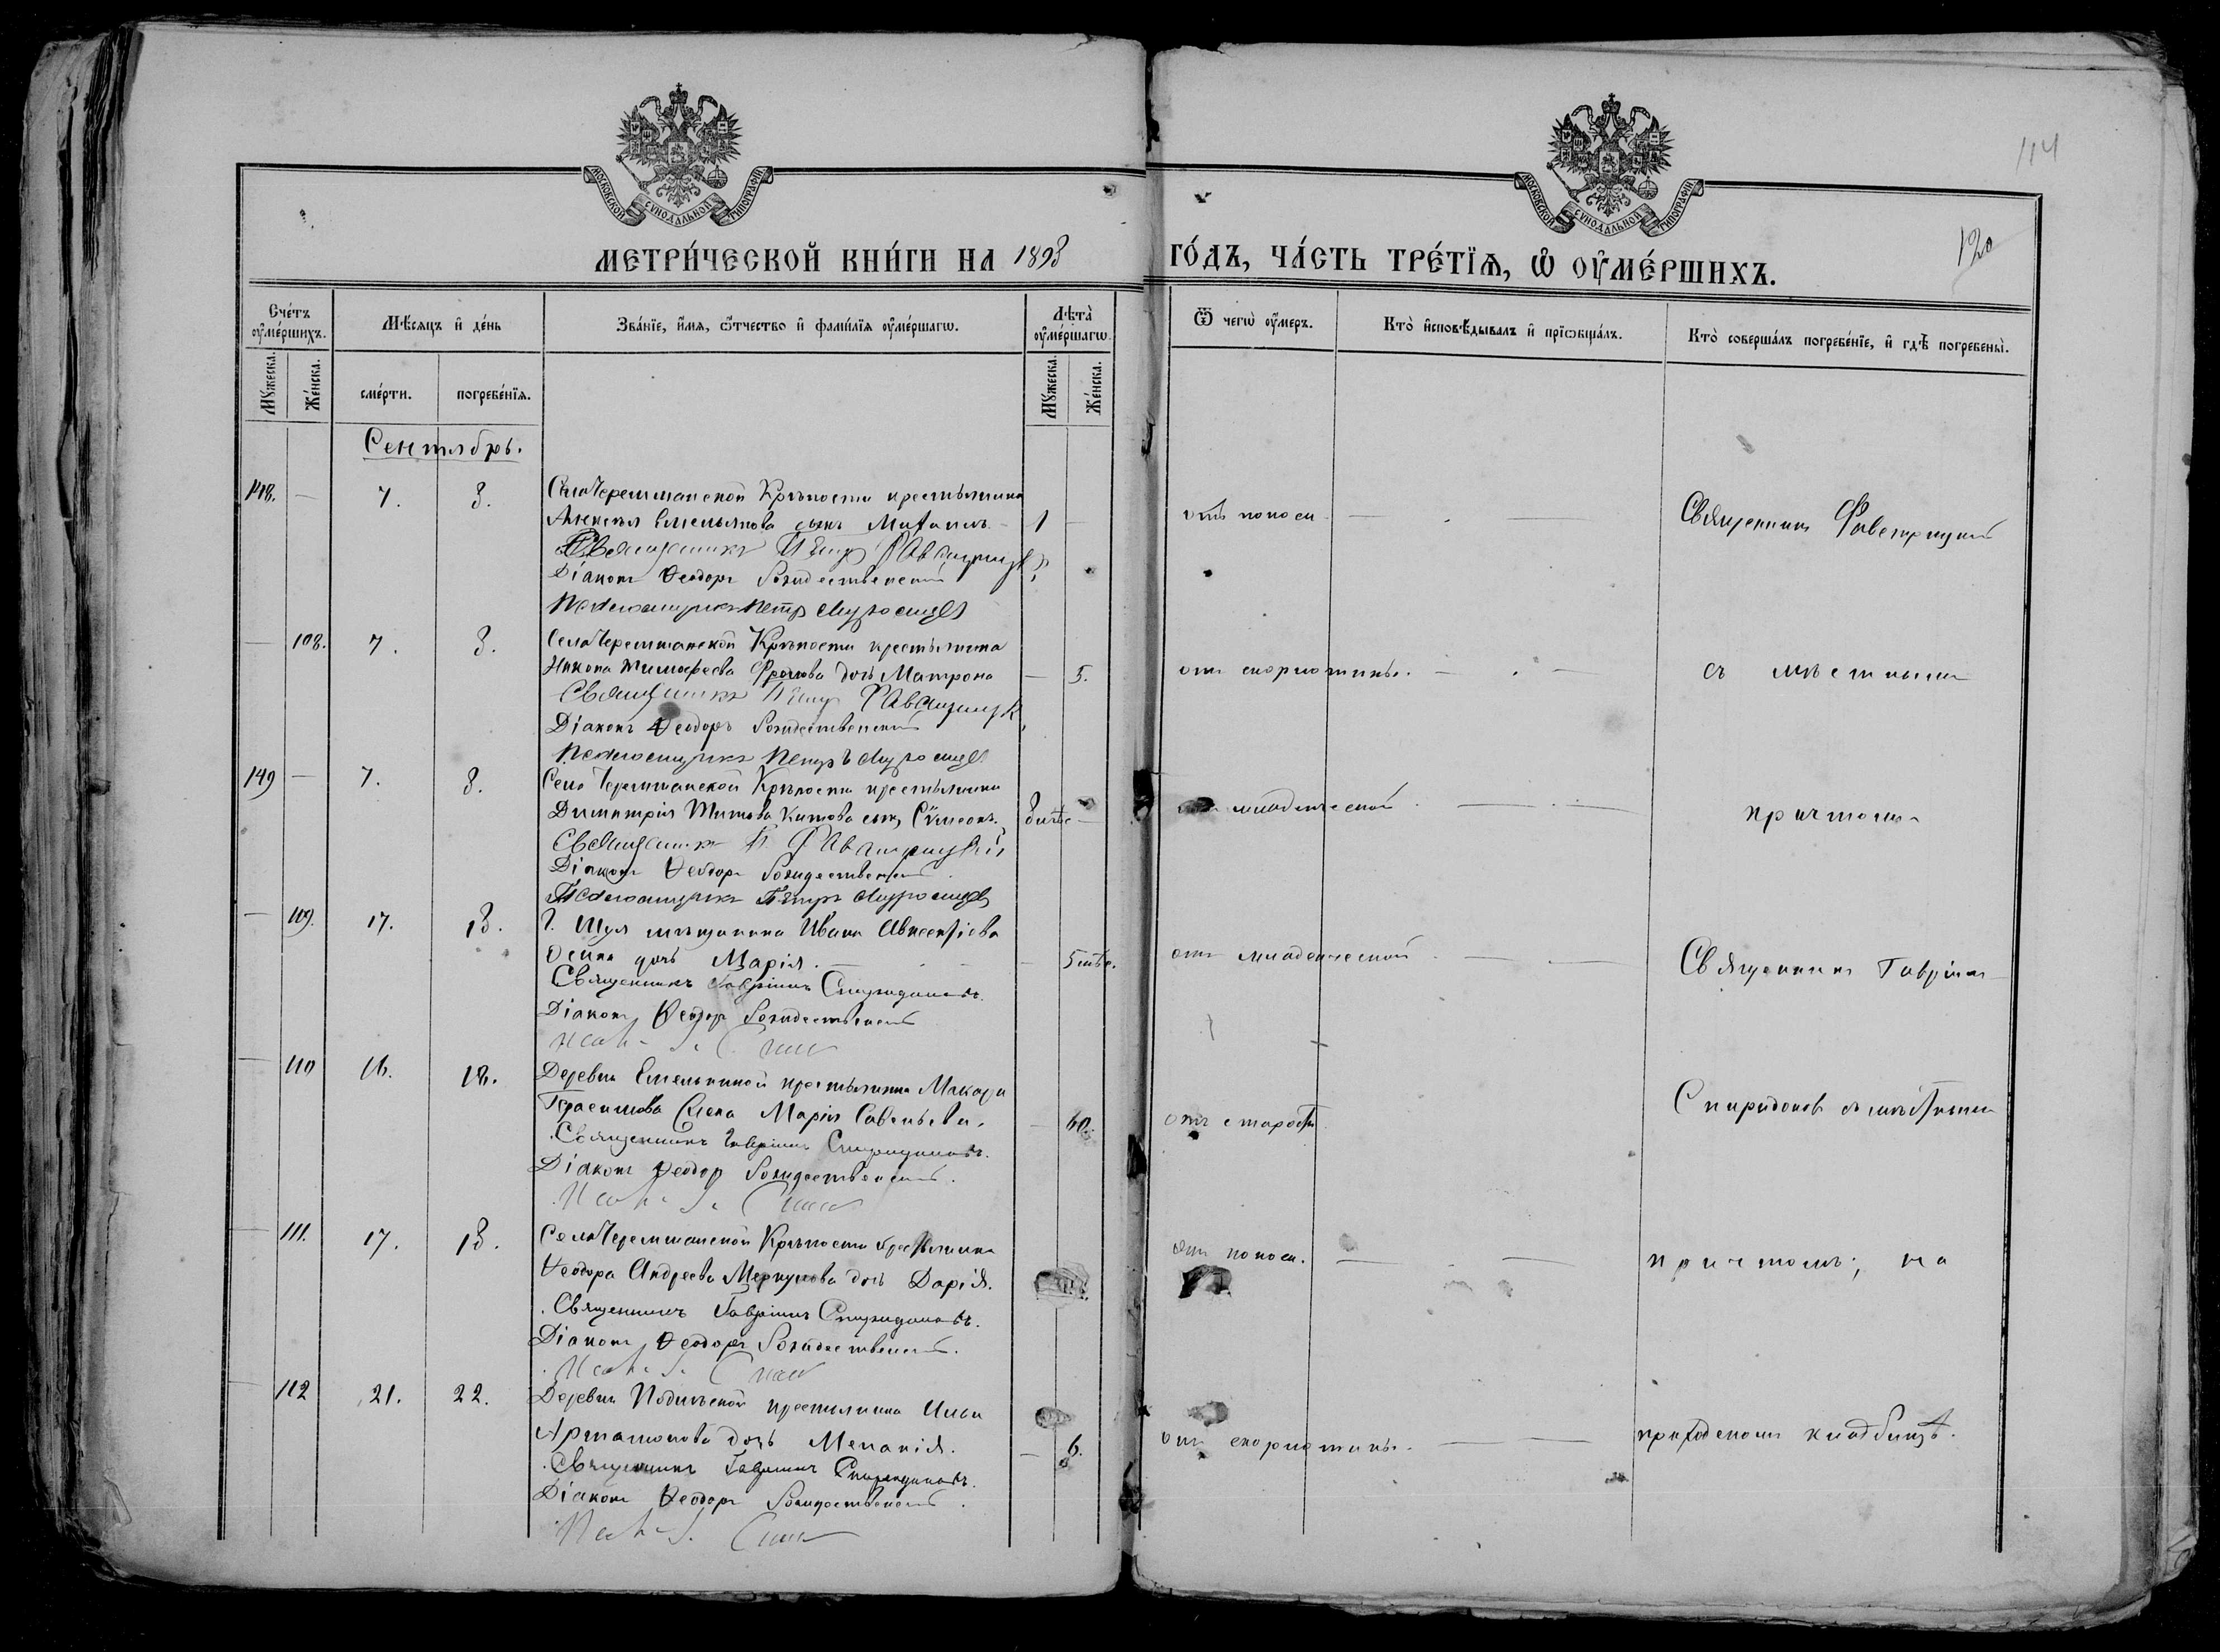 114
120
МОСКОВСКОЙ СѴНОДАЛЬНОЙ ТИПОГРАФІИ
МОСКОВСКОЙ СѴНОДАЛЬНОЙ ТИПОГРАФІИ
МЕТРИ́ЧЕСКОЙ КНИ́ГИ НА 1893 ГО́ДЪ, ЧА́СТЬ ТРЕ́ТЇѦ, Ѡ҆ ОУ҆МЕ́РШИХЪ.
Сче́тъ оу҆ме́ршихъ.
Мꙋ́жеска.
Же́нска.
Мѣ́сяцъ и҆ де́нь
сме́рти.
погребе́нїѧ.
Зва́нїе, и҆́мѧ, ѻ҆́тчество и҆ фами́лїѧ оу҆ме́ршагѡ.
Лѣ́та оу҆ме́ршагѡ.
Мꙋ́жеска.
Же́нска.
Ѿ чегѡ̀ оу҆́меръ.
Кто̀ и҆сповѣ́дывалъ и҆ прїѡбща́лъ.
Кто̀ соверша́лъ погребе́нїе, и҆ гдѣ̀ погребены̀.
Сентябрь.
148. — 7. 8. Села Черемшанской Крѣпости крестьянина
Алексѣя Емельянова сынъ Михаилъ 1 — отъ поноса — Священникъ
Священникъ Петръ
Діаконъ Ѳеодоръ Рождественскій
Псаломщикъ Петръ
— 108. 7. 8. Села Черемшанской Крѣпости крестьянина
Никона Тимофеева Фролова дочь Матрона — 5. отъ скорлатины. — съ мѣстнымъ
Священникъ Петръ
Діаконъ Ѳеодоръ Рождественскій
Псаломщикъ Петръ
149 — 7. 8. Села Черемшанской Крѣпости крестьянина
Димитрія Титова Китова сынъ Сѵмеонъ. — младенческой — причтомъ
Священникъ П.
Діаконъ Ѳеодоръ Рождественскій
Псаломщикъ Петръ
— 109. 17. 18. Г. Шуя мѣщанина Ивана Авксентіева
дочь Марія. — 5 мѣс. отъ младенческой — Священникъ Гавріилъ
Священникъ Гавріилъ Спиридоновъ.
Діаконъ Ѳеодоръ Рождественскій
— 110 16. 18. Деревни Емелькиной крестьянина Макара
Герасимова жена Марія Савельева. — 60. отъ старости Спиридоновъ съ мѣстнымъ
Священникъ Гавріилъ Спиридоновъ.
Діаконъ Ѳеодоръ Рождественскій.
— 111. 17. 18. Села Черемшанской Крѣпости крестьянина
Ѳеодора Андреева Меркулова дочь Дарія. отъ поноса. — причтомъ; на
Священникъ Гавріилъ Спиридоновъ.
Діаконъ Ѳеодоръ Рождественскій.
— 112 21. 22. Деревни Подлѣсной крестьянина Ильи
Артамонова дочь Меланія. — 6. отъ скорлатины. — приходскомъ кладбищѣ.
Священникъ Гавріилъ Спиридоновъ.
Діаконъ Ѳеодоръ Рождественскій.